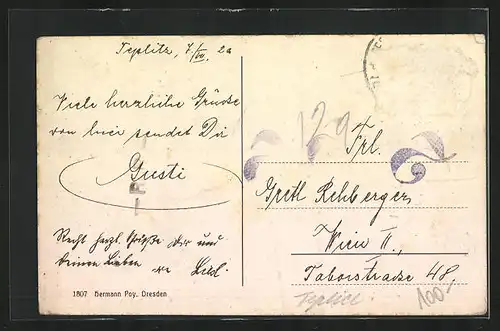 Teplitz, 7/VII. 20
Viele herzliche Grüsse
von hier sendet Dir
Gusti
Recht herzl. Grüße dir und
deinen Lieben
1807 Hermann Poy, Dresden
129
Frl.
Gretl Rehberger,
Wien II.,
Taborstrasse 48,
Teplice
100